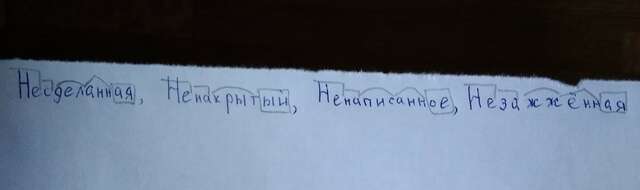 Несделанная, Ненакрытый, Ненаписанное, Незажжённая